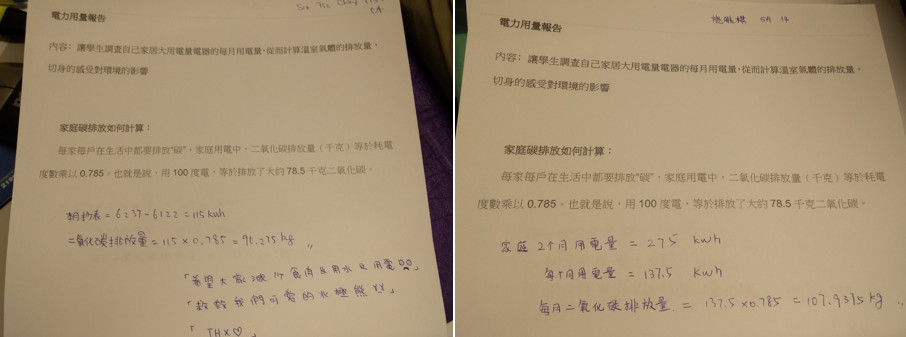 電力用量報告
5A
內容: 讓學生調查自己家居大用電量電器的每月用電量,從而計算溫室氣體的排放量,
切身的感受對環境的影響
家庭碳排放如何計算:
每家每戶在生活中都要排放“碳”。家庭用電中,二氧化碳排放量(千克)等於耗電
度數乘以 0.785。也就是說,用 100 度電,等於排放了大約 78.5 千克二氧化碳。
= 6237 - 6122 = 115 kwh
二氧化碳排放量 = 115 x 0.785 = 90.275 kg
「希望大家減少食肉&用水&用電
「救救我們可愛的北極熊
「THX♡」
電力用量報告
5A 14
內容: 讓學生調查自己家居大用電量電器的每月用電量,從而計算溫室氣體的排放量,
切身的感受對環境的影響
家庭碳排放如何計算:
每家每戶在生活中都要排放“碳”,家庭用電中,二氧化碳排放量(千克)等於耗電
度數乘以 0.785。也就是說,用 100 度電,等於排放了大約 78.5 千克二氧化碳。
家庭 2个月用電量 = 275 kwh
每个月用電量 = 137.5 kwh
每月二氧化碳排放量 = 137.5 x 0.785 = 107.9375 kg